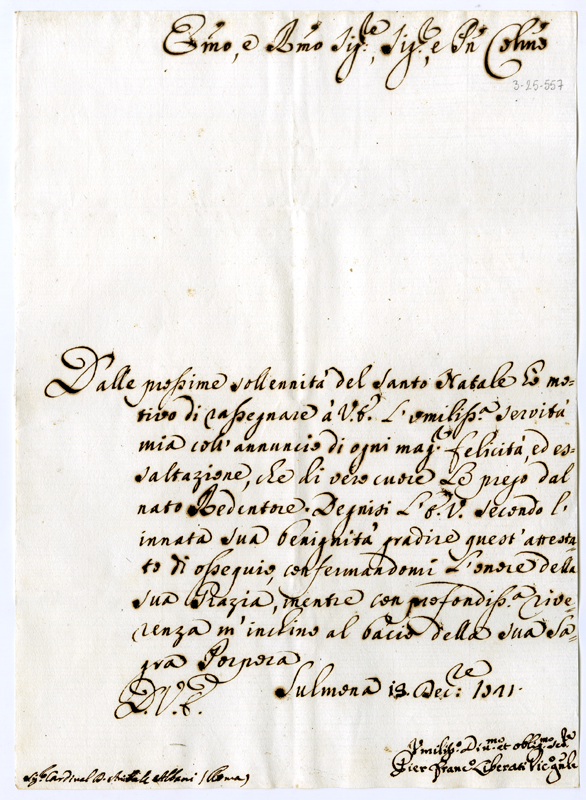 Em̃o, e Rm̃o Sig.re, Sig.re, e Pñe Colm̃o
3-25-557
Dalle prossime sollennità del Santo Natale hò mo-
tivo di rassegnare à V. E. l'umiliss.a servitù
mia coll'annuncio di ogni mag.r felicità, ed es-
saltazione, che di vero cuore Le prego dal
nato Redentore. Degnisi l'E. V. secondo l'
innata sua benignità gradire quest'attesta-
to di ossequio, confermandomi l'onore della
sua Grazia, mentre con profondiss.a rive-
renza m'inchino al bacio della sua Sa-
gra Porpora
D. V. E. Sulmona 18. Dec.re
Umiliss.o Div.mo et oblig.mo
Sig.r Cardinal D. Annibale Albani (Roma) Pier Franc.o Liberati Vic.o